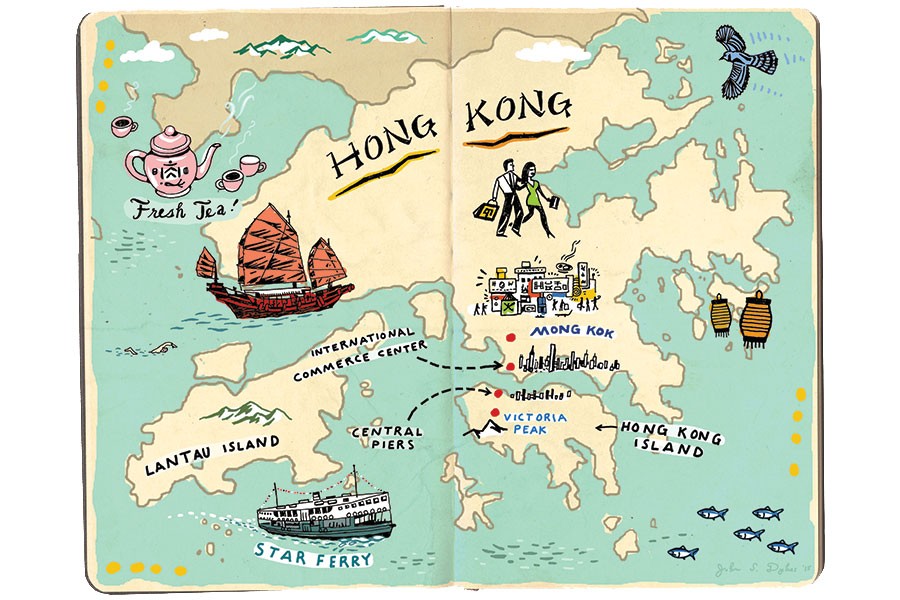 HONG KONG
Fresh Tea!
MONG KOK
INTERNATIONAL
COMMERCE CENTER
CENTRAL
PIERS
VICTORIA
PEAK
HONG KONG
ISLAND
LANTAU ISLAND
STAR FERRY
John S. Dykes